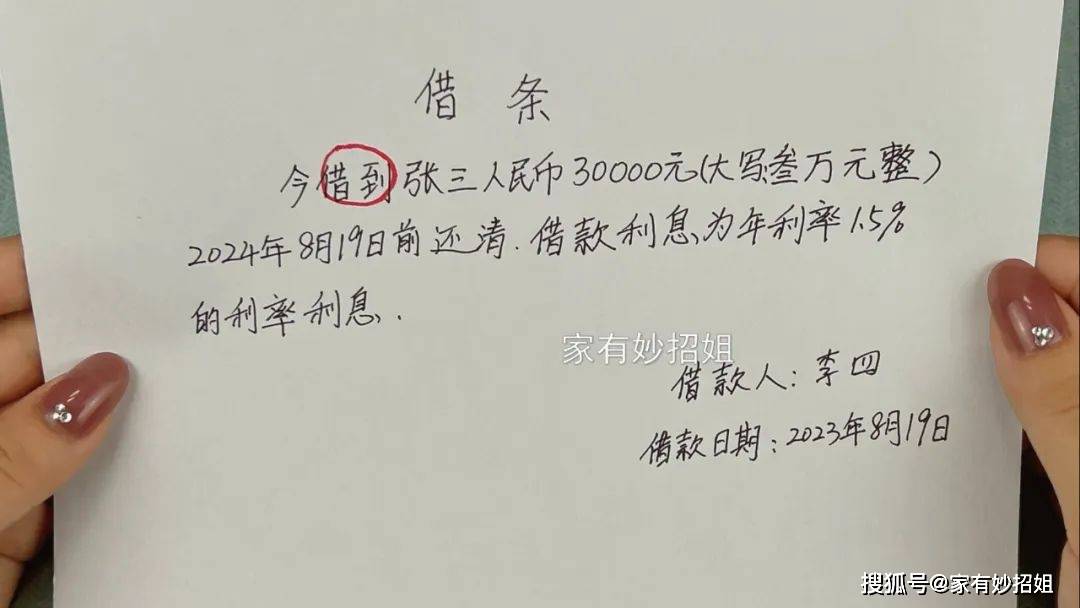 借 条
今借到张三人民币30000元(大写:叁万元整)
2024年8月19日前还清.借款利息为年利率1.5%
的利率利息.
家有妙招姐
借款人:李四
借款日期:2023年8月19日
搜狐号@家有妙招姐